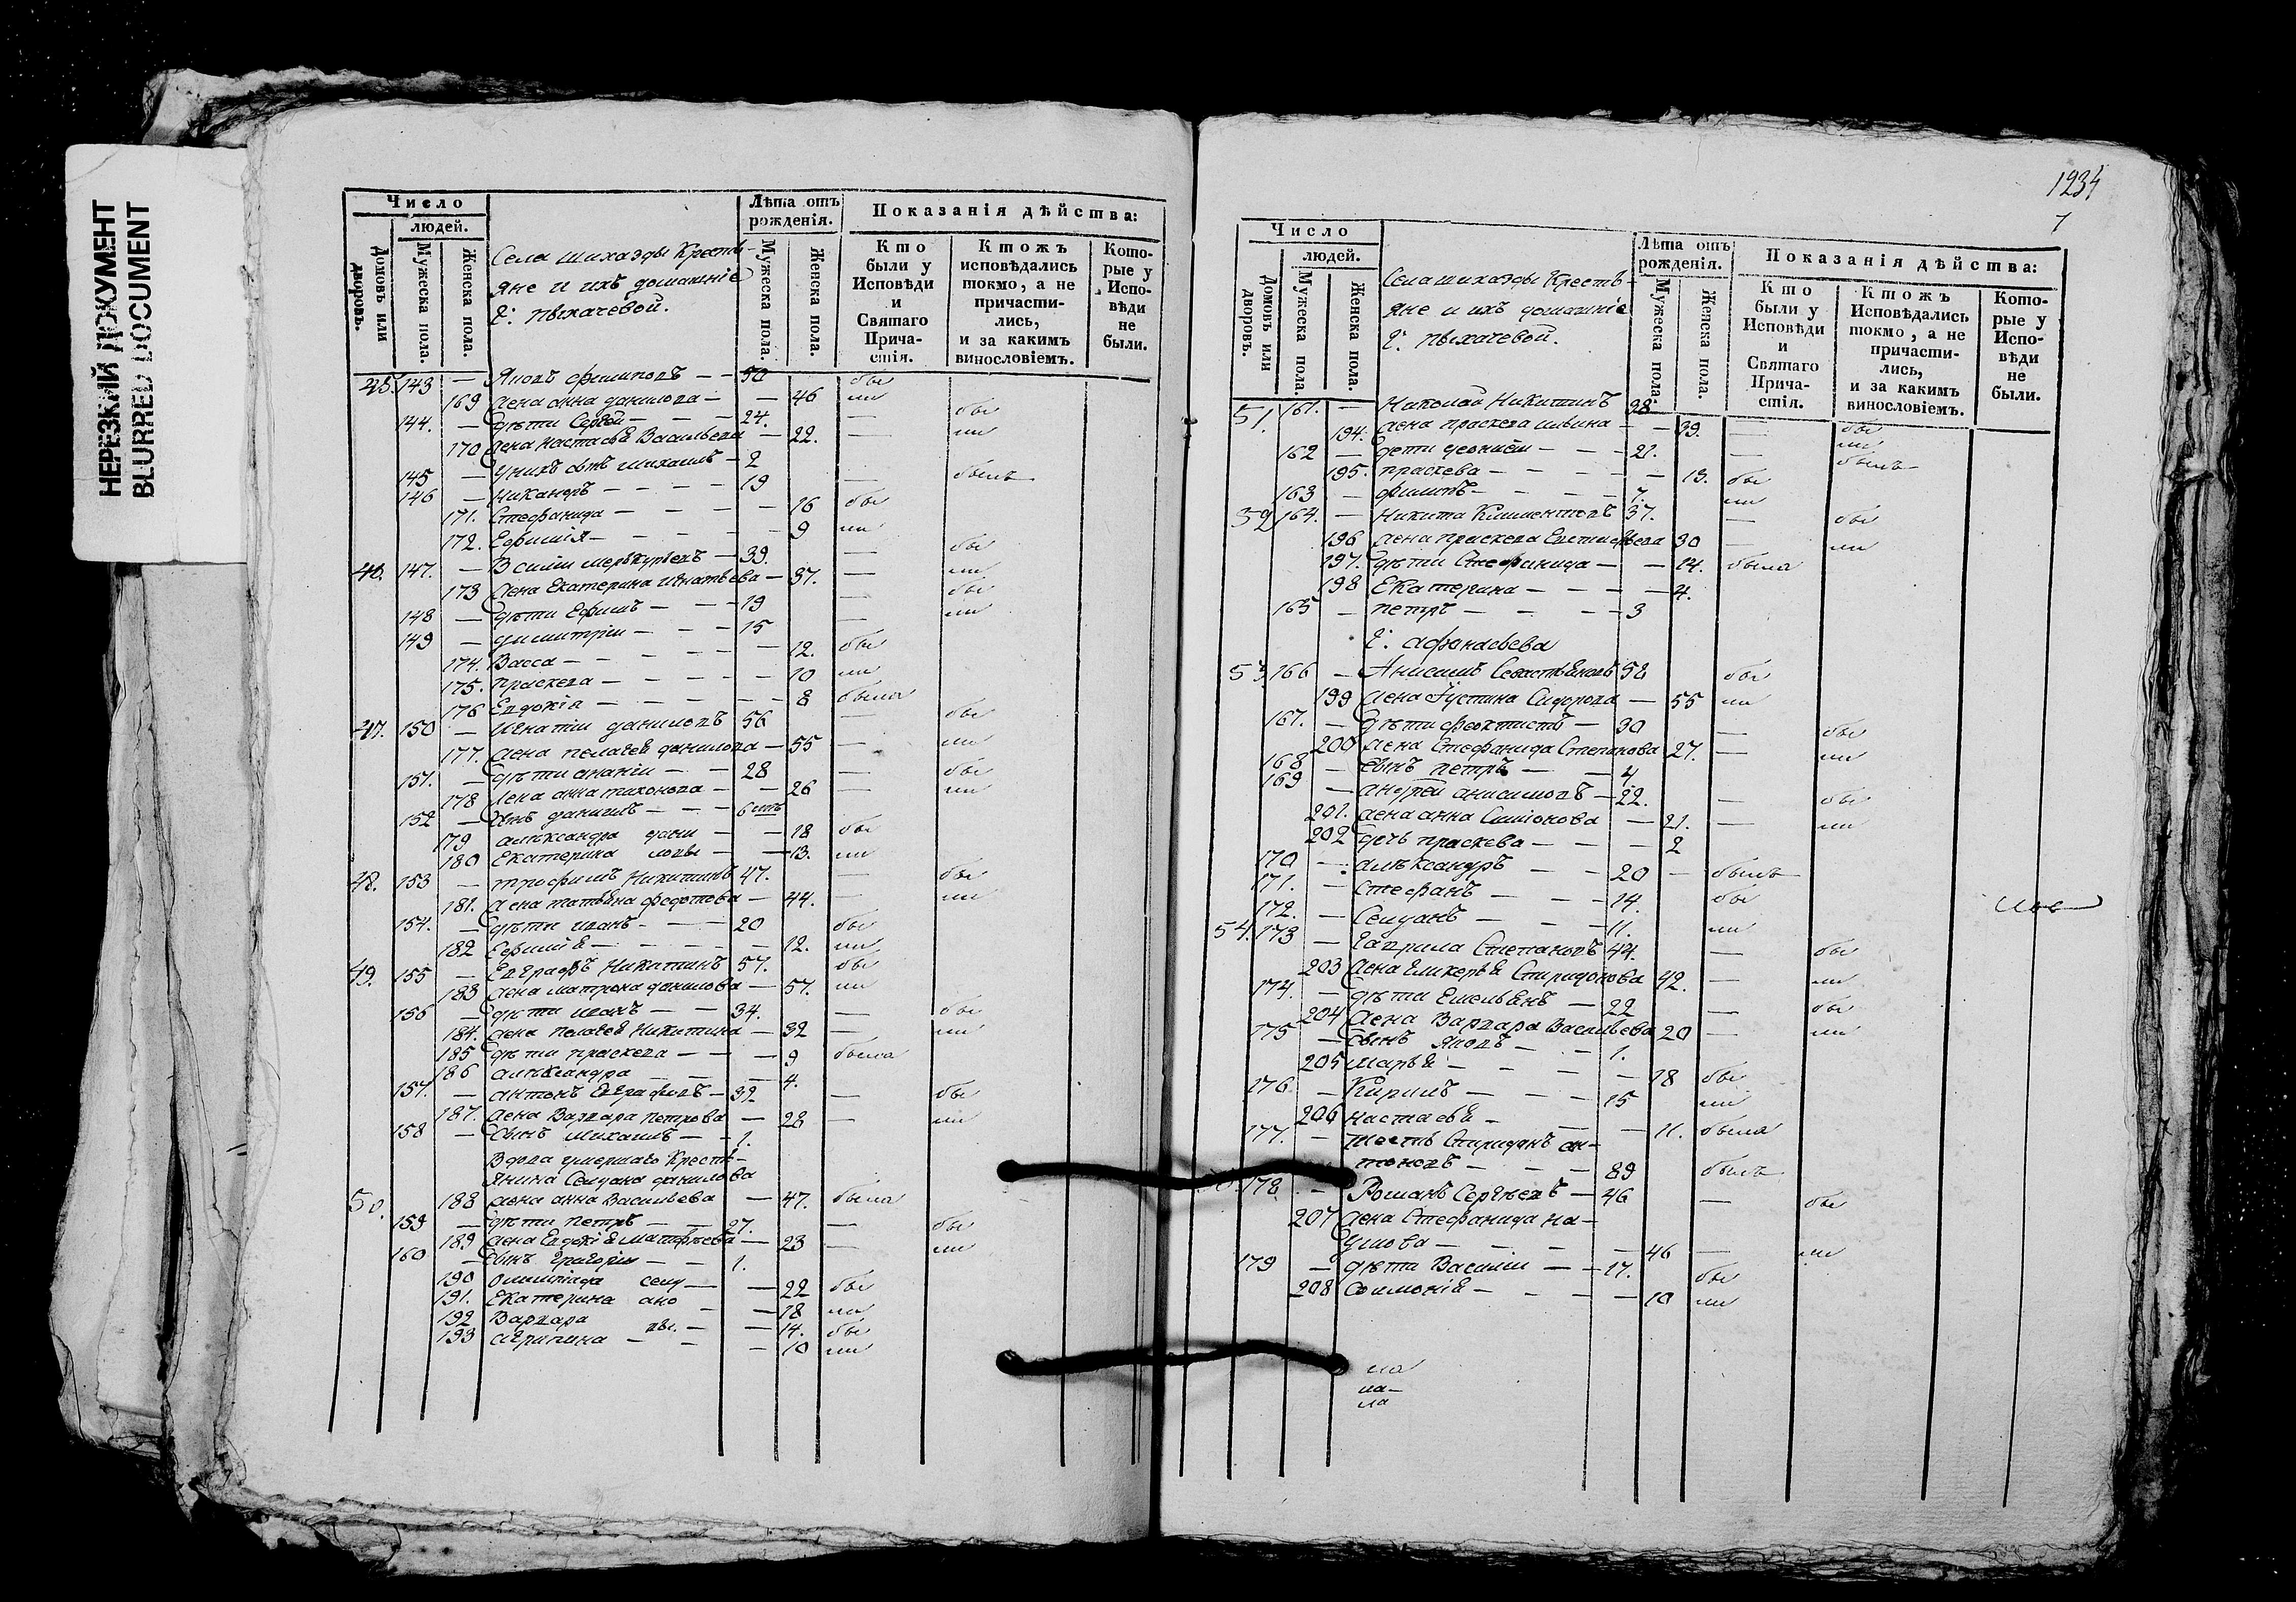 НЕРЕЗКИЙ ДОКУМЕНТ
BLURRED DOCUMENT
Число
людей.
Домовъ или дворовъ.
Мужеска пола.
Женска пола.
Села Крестья-
яне и ихъ домашніе
Г: Пыхачевой.
Лѣта отъ рожденія.
Мужеска пола.
Женска пола.
Показанія дѣйства:
Кто были у Исповѣди и Святаго Прича-стія.
Ктожъ исповѣдались токмо, а не причасти-лись, и за какимъ винословіемъ.
Кото-рые у Испо-вѣди не были.
45. 143 — Яковъ Филиповъ — — 50 бы
169 жена анна данилова — — 46 ли
144. — дѣти Сергей — — 24. — бы
170 жена настасья Васильева — 22. — ли
145 — у нихъ сынъ михаилъ — 2
146 — Никаноръ — — — — 19 — былъ
171. Стефанида — — — — 16 бы
172. Ефимія — — — — 9 ли
46. 147. — Василіи меркурьевъ — 39. — бы
173 жена Екатерина игнатьева — 37. — ли
148 — дѣти Ефимъ — — — 19 — бы
149 — димитріи — — — 15 — ли
174. Васса — — — — — 12. бы
175. праскева — — — — — 10 ли
176 Евдокіа — — — — — 8 была
47. 150 — игнатіи даниловъ 56 — бы
177. жена пелагея данилова — 55 — ли
151. — дѣти ананіи — — 28 — бы
178 жена анна тихонова — — 26 — ли
152 — сынъ данилъ — — — 6
179 александра дани — — 18 бы
180 Екатерина ловы — — 13. ли
48. 153 — трофимъ Никитинъ 47. — бы
181. жена татьяна федотова — 44. — ли
154. — дѣти иванъ — — — 20 бы
182 Ефимія — — — — — 12. ли
49. 155 — Евграфъ Никитинъ 57. бы
183 жена матрона данилова — 57. ли
156 — дѣти иванъ — — 34. — бы
184. жена пелагея Никитина — 32 — ли
185 дѣти праскева — — — 9 была
186 александра — — — 4.
157. — антонъ Евграфовъ — 32 — бы
187. жена Варвара петрова — 28 — ли
158 — сынъ михаилъ — — 1.
Вдова умершаго Кресть-
янина данилова
50. 188 жена анна Васильева — 47. была
159 — дѣти петръ — — 27. — бы
189 жена Евдокія матфѣева — 23 — ли
160 — сынъ григоріи — — 1.
190 олимпіада — — 22 бы
191. Екатерина — — 18 ли
192 Варвара вы. — — 14. бы
193 агрипина — — — 10 ли
1234
7
Число
людей.
Домовъ или дворовъ.
Мужеска пола.
Женска пола.
Села Кресть-
яне и ихъ домашніе
Г: Пыхачевой.
Лѣта отъ рожденія.
Мужеска пола.
Женска пола.
Показанія дѣйства:
Кто были у Исповѣди и Святаго Прича-стія.
Ктожъ Исповѣдались токмо, а не причасти-лись, и за какимъ винословіемъ.
Кото-рые у Испо-вѣди не были.
51. 161. — Николай Никитинъ 38. — бы
194. жена праскева — — 39. — ли
162 — дѣти — — — 21. — былъ
195. праскева — — — — — 13. бы
163 — филипъ — — — — 7. ли
52 164. — Никита Климентовъ 37. — бы
196 жена праскева Евстифѣева 30 — ли
197. дѣти Стефанида — — 14. была
198 Екатерина — — — — 4.
165 — петръ — — — — 3
Г: афанасьева
53. 166 — Анисимъ Севастьяновъ 58 бы
199 жена Іустина Сидорова — 55 ли
167. — дѣти феоктистъ — 30 — бы
200 жена Стефанида Степанова 27. — ли
168 — сынъ петръ — — 4.
169 — андрей анисимовъ — 22. — бы
201. жена анна Симіонова — 21. — ли
202 дочь праскева — — — 2
170 — александръ — — 20 — былъ
171. — стефанъ — — — 14. бы
172. — — — — 11. ли
54. 173 — Гаврила Степановъ 44. — бы
203 жена гликерья Спиридонова 42. — ли
174. — дѣти Емельянъ — 22 — бы
204 жена Варвара Васильева 20 — ли
175 — сынъ Яковъ — — 1.
205 марья — — — — 18 бы
176. — Кирилъ — — — 15 ли
206 настасья — — — — 11. была
177. — тесть Спиридонъ ан-
тоновъ — — — 89 былъ
178. — Романъ Сергѣевъ — 46 — бы
207 жена Стефанида на-
умова — — — — 46 — ли
179 — дѣти Василіи — — 17. бы
208 Соломонія — — — — 10 ли
ла
ла-
ла